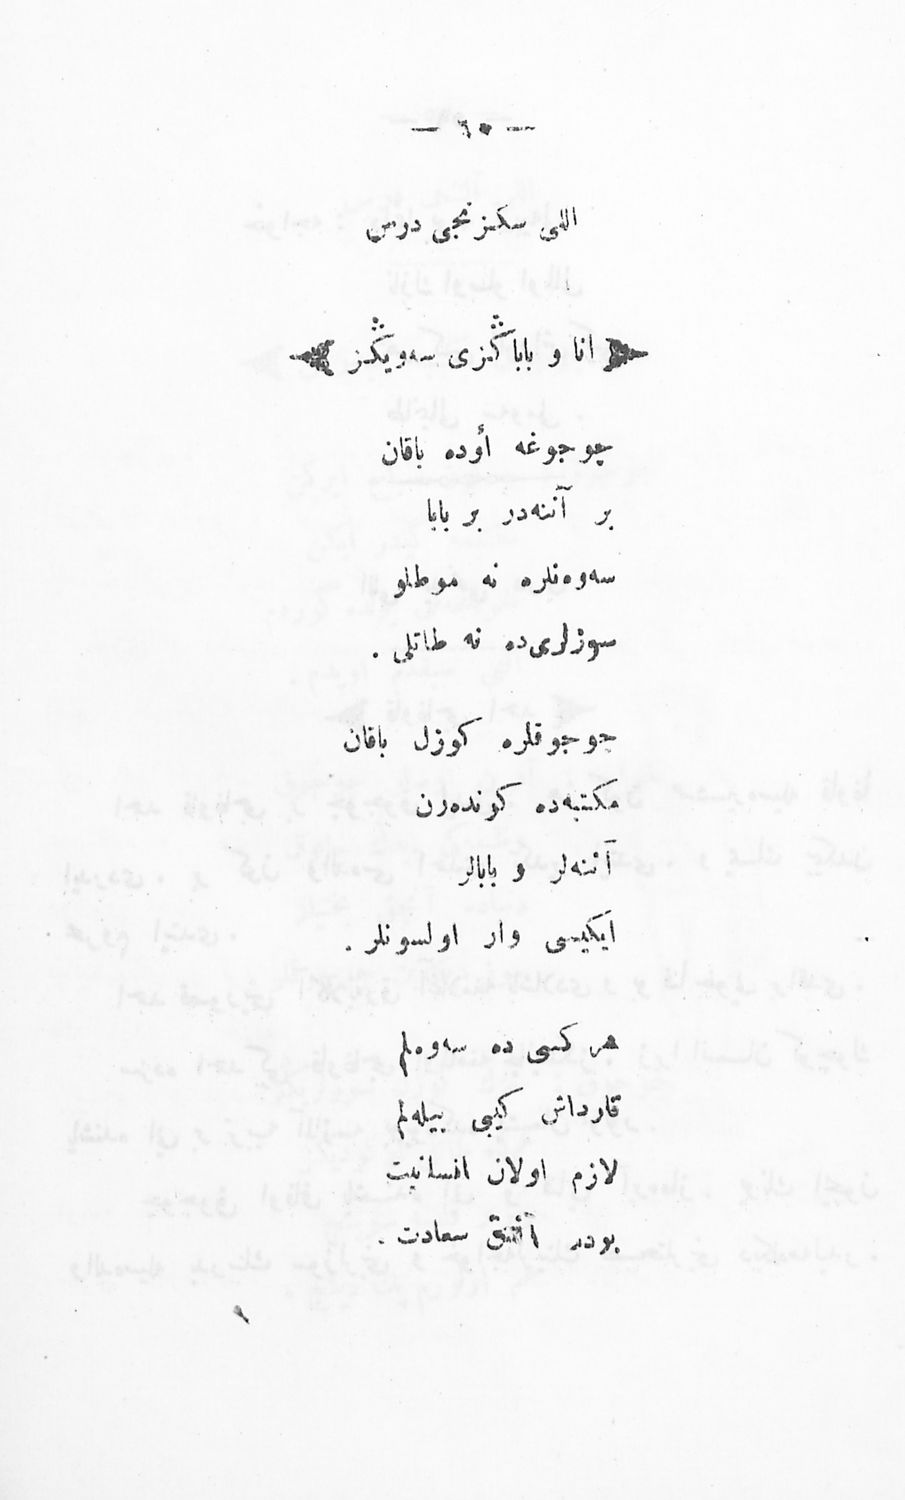 — ٦٠ —
اللى سكزنجى درس
انا و باباڭزى سەويڭز
چوجوغه أوده باقان
بر آننەدر بر بابا
سەوەنلره نه موطلو
سوزلرى‌ده نه طاتلى .
جوجوقلره كوزل باقان
مكتبەده كوندەرن
آننەلر و بابالر
ايكيسى وار اولسونلر .
هر كسى ده سەوەلم
قارداش كيبى بيلەلم
لازم اولان انسانيت
بودر آنجق سعادت .